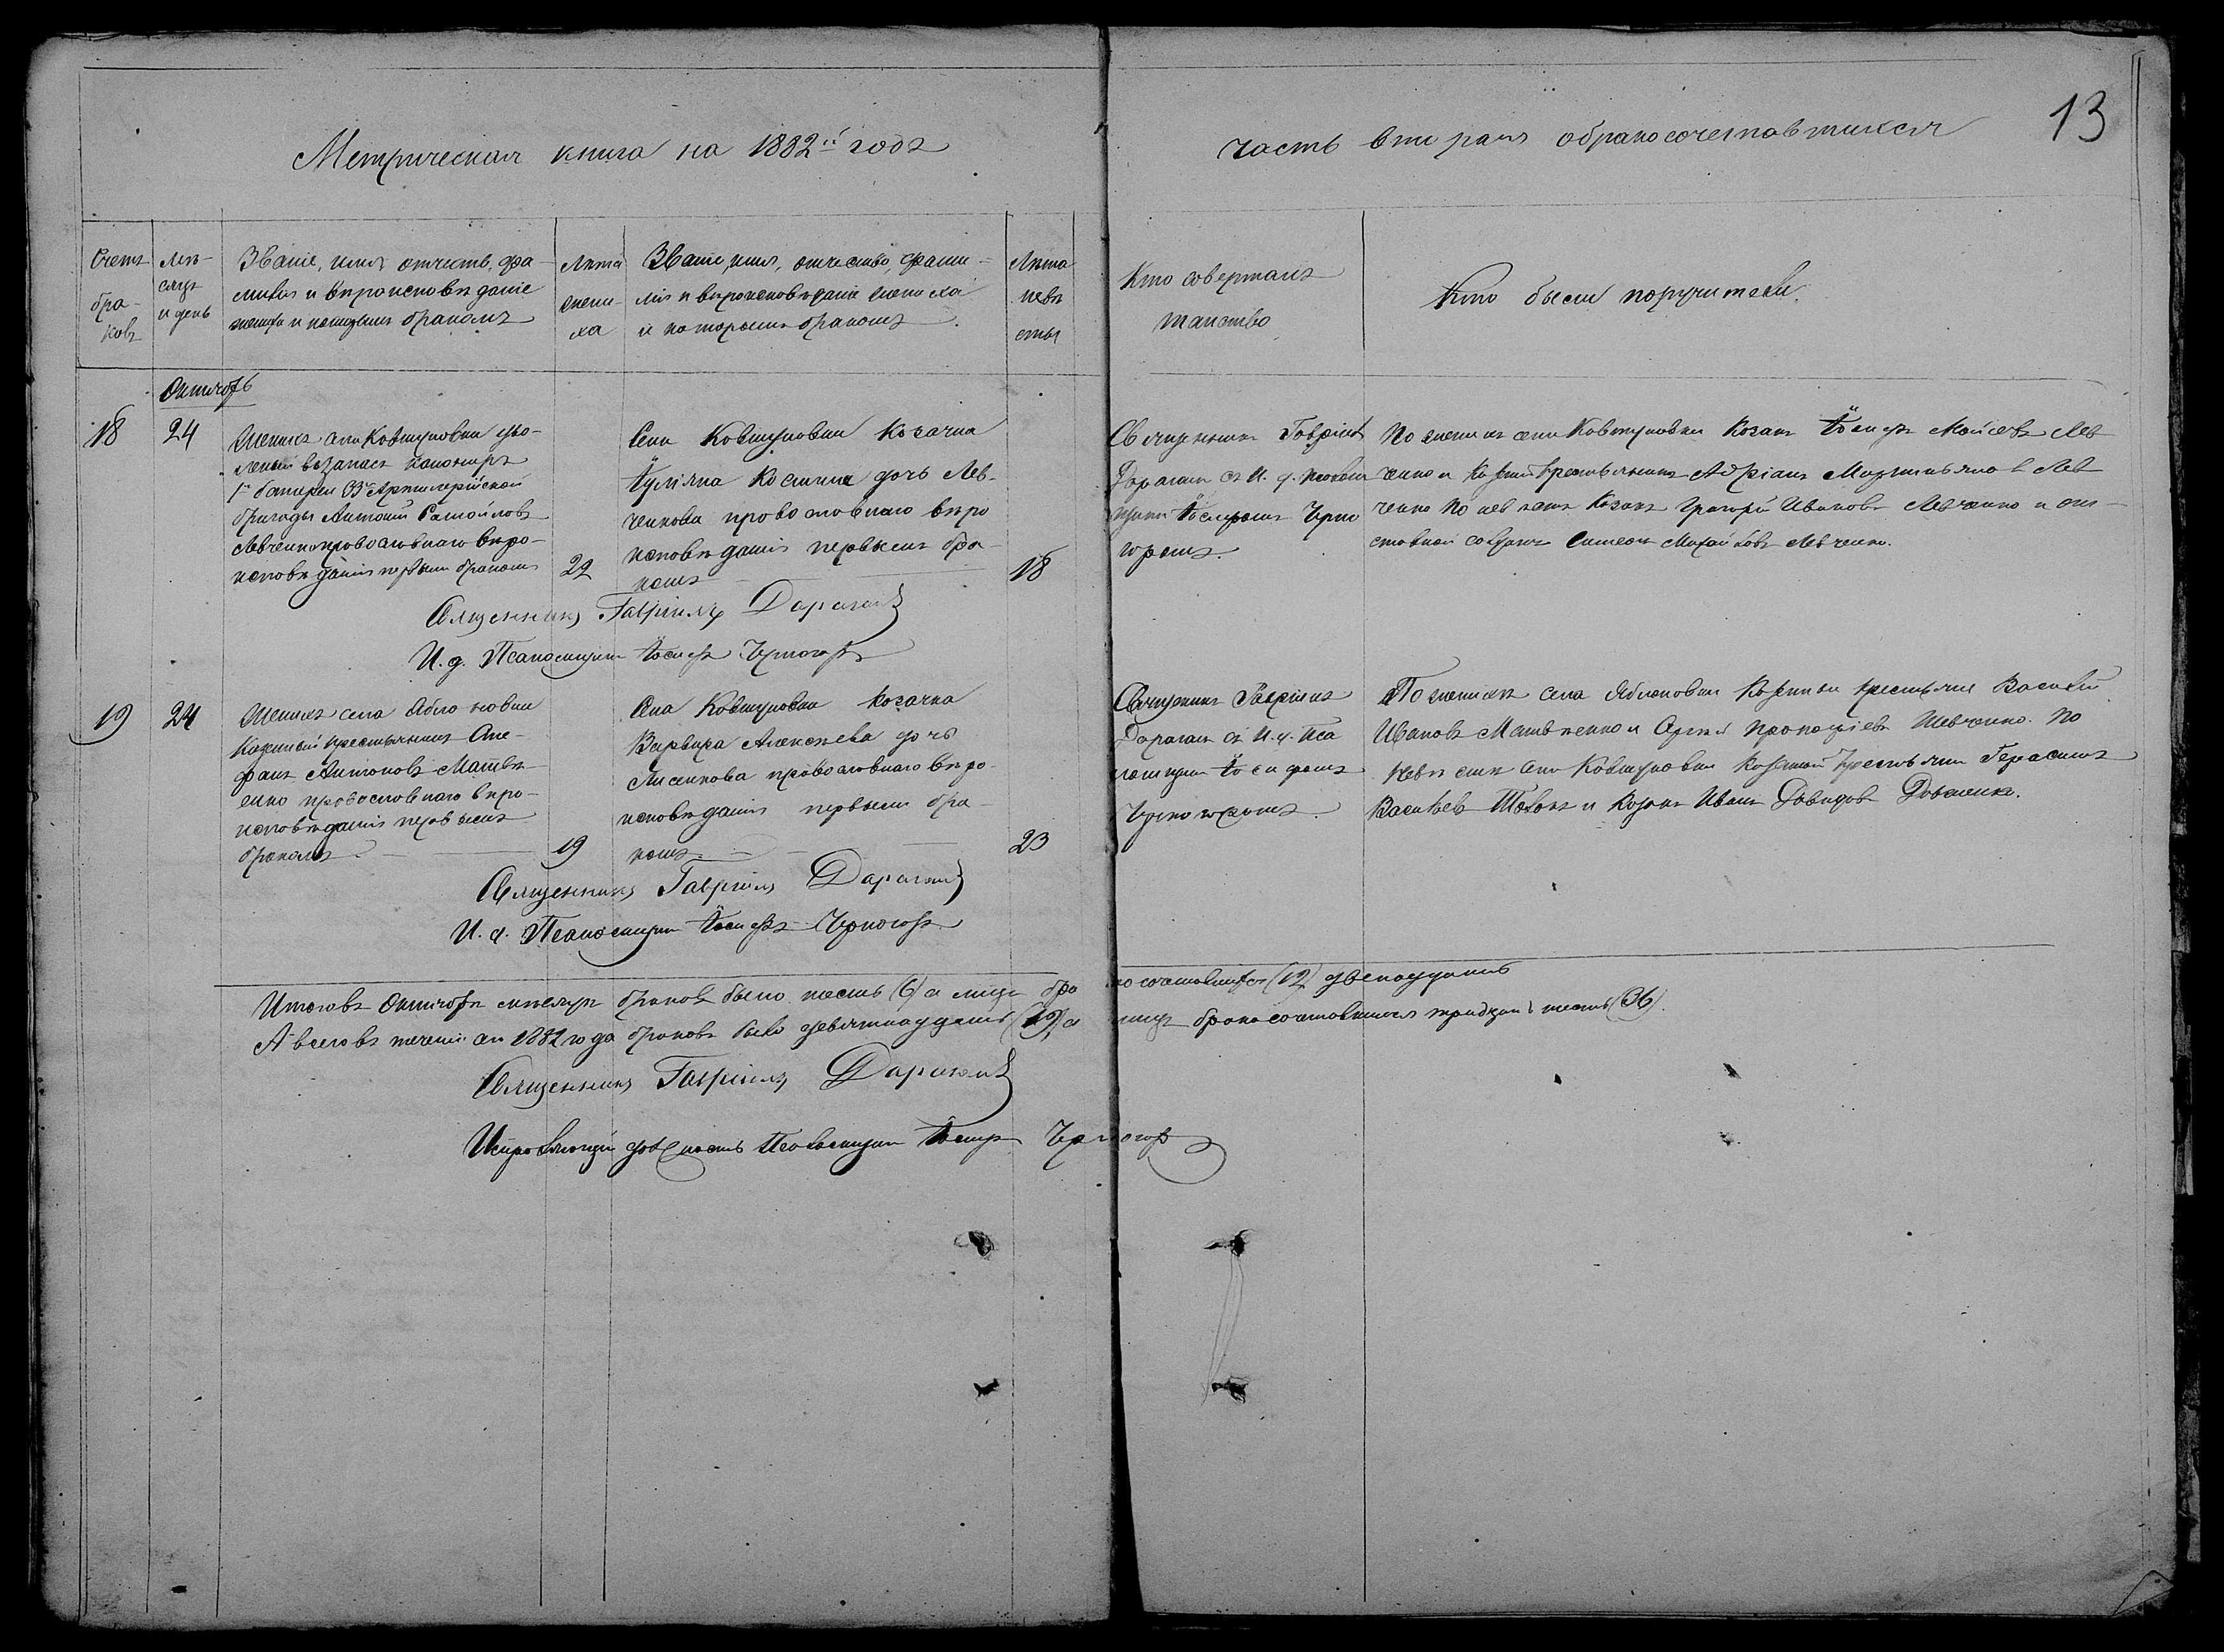 Метрическая книга на 1882й годъ
часть вторая о бракосочетавшихся
13
Счетъ бра-ковъ
Мѣ-сяцъ и день
Званіе, имя, отчеств, фа-
милія и вѣроисповѣданіе
жениха и которымъ бракомъ
Лѣта жени-ха
Званіе, имя, отчество, фами-
лія и вѣроисповѣданіе
и которымъ бракомъ.
Лѣта невѣ сты
Кто совершалъ
таинство
Кто были поручители.
Октябрь
18
24
Женихъ села Ковтуновки уво-
леный въ запасъ канониръ
1й батареи 33й Артилерійской
бригады Антоній Самойловъ
Левченко православнаго вѣро-
исповѣданія первымъ бракомъ
22
Села Ковтуновки козачка
Іуліяна Косьмина дочь Лев-
ченкова православнаго вѣро
исповѣданія первымъ бра-
комъ
18
Священникъ Гавріилъ
Дараганъ съ И. д. псалом
щика Іосифомъ Черно
горомъ
По женихѣ села Ковтуновки козакъ Іосифъ Моисеевъ Лев
ченко и козенный крестьянинъ Адріанъ Мартиніяновъ Лев
ченко по невѣстѣ козакъ Григорій Ивановъ Левченко и от-
ставной солдатъ Симеонъ Михайловъ Левченко.
Священникъ Гавріилъ Дараганъ
И. д. Псаломщика Іосифъ Черногоръ
19
24
Женихъ села Яблоновки
Казенный крестьянинъ Сте-
фанъ Антоновъ Матвѣ-
енко православнаго вѣро-
исповѣданія первымъ
бракомъ
19
Села Ковтуновки козачка
Варвара Алексѣева дочь
Лисенкова православнаго вѣро-
исповѣданія первымъ бра-
комъ
23
Священникъ Гавріилъ
Дараганъ съ И. д. Пса
ломщика Іосифомъ
Черногоромъ.
По женихѣ села Яблоновки Козенные крестьяне Василій
Ивановъ Матвѣенко и Сергѣй Прокофіевъ Шевченко. По
невѣстѣ села Ковтуновки козенный крестьянин Герасимъ
Васильевъ и козакъ Иванъ Давидовъ Довженко.
Священникъ Гавріилъ Дараганъ
И. д. Псаломщика Іосифъ Черногоръ
Итого въ Октябрѣ мѣсяцѣ браковъ было шесть (6) а лицъ бракосочетавшихся (12) двенаддать
А всего въ теченіи сего 1882 года браковъ было девятнаддать (19) а лицъ бракосочетавшихся тридцать шесть (36).
Священникъ Гавріилъ Дараганъ
Исправляющій должность Псаломщика Іосифъ Черногоръ